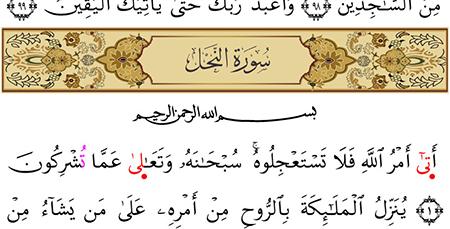 مِنَ ٱلسَّـٰجِدِينَ ﴿٩٨﴾ وَٱعْبُدْ رَبَّكَ حَتَّىٰ يَأْتِيَكَ ٱلْيَقِينُ ﴿٩٩﴾
سُورَةُ النَّحْلِ
بِسْمِ اللهِ الرَّحْمٰنِ الرَّحِيمِ
أَتَىٰٓ أَمْرُ ٱللَّهِ فَلَا تَسْتَعْجِلُوهُ ۚ سُبْحَـٰنَهُۥ وَتَعَـٰلَىٰ عَمَّا تُشْرِكُونَ
﴿١﴾ يُنَزِّلُ ٱلْمَلَـٰٓئِكَةَ بِٱلرُّوحِ مِنْ أَمْرِهِۦ عَلَىٰ مَن يَشَآءُ مِنْ